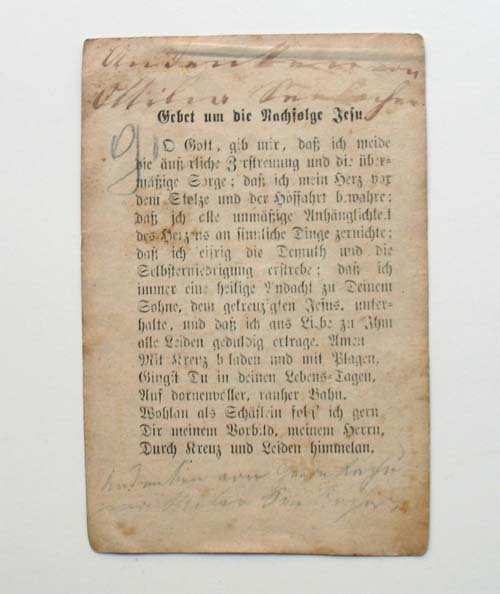 Andenken von
Ottilia
Gebet um die Nachfolge Jesu
O Gott, gib mir, daß ich meide
die äußerliche Zerstreuung und die über-
mäßige Sorge; daß ich mein Herz vor
dem Stolze und der Hoffahrt bewahre;
daß ich alle unmäßige Anhänglichkeit
des Herzens an sinnliche Dinge zernichte;
daß ich eifrig die Demuth und die
Selbsterniedrigung erstrebe; daß ich
immer eine heilige Andacht zu Deinem
Sohne, dem gekreuzigten Jesus, unter-
halte, und daß ich aus Liebe zu Ihm
alle Leiden geduldig ertrage. Amen
Mit Kreuz beladen und mit Plagen,
Gingst Du in deinen Lebens-Tagen,
Auf dornenvoller, rauher Bahn.
Wohlan als Schäflein folg' ich gern
Dir meinem Vorbild, meinem Herrn,
Durch Kreuz und Leiden himmelan.
Andenken von